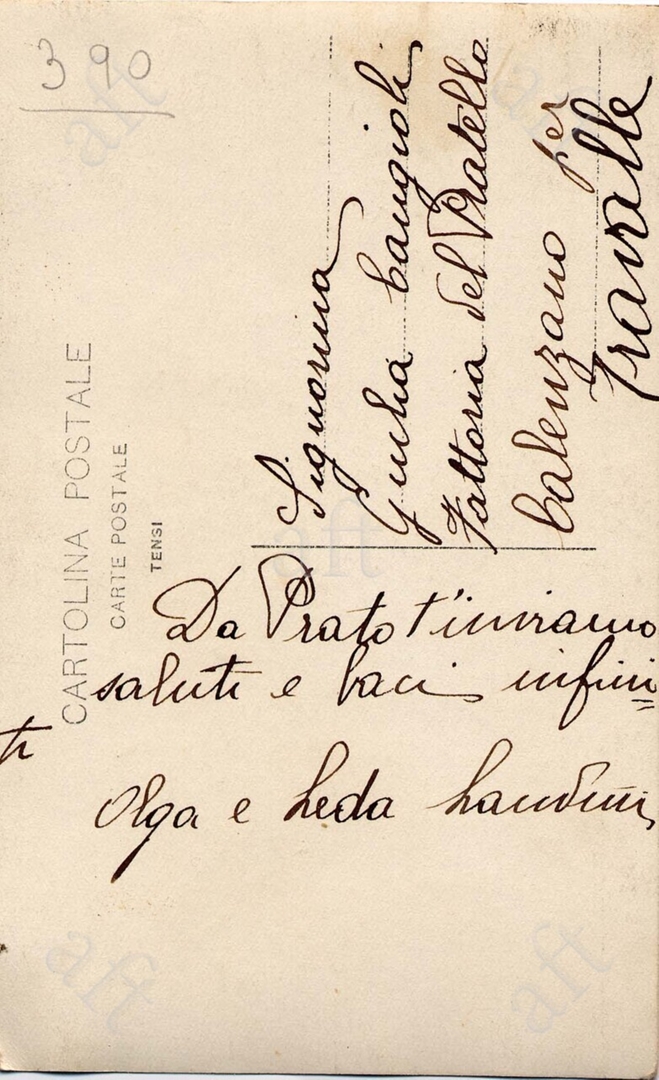 390
CARTOLINA POSTALE
CARTE POSTALE
TENSI
Signorina
Giulia Cangioli
Fattoria del Pratello
Calenzano per
Travalle
Da Prato t'inviamo
saluti e baci infini=
ti
Olga e Leda Landini
aft
aft
aft
aft
aft